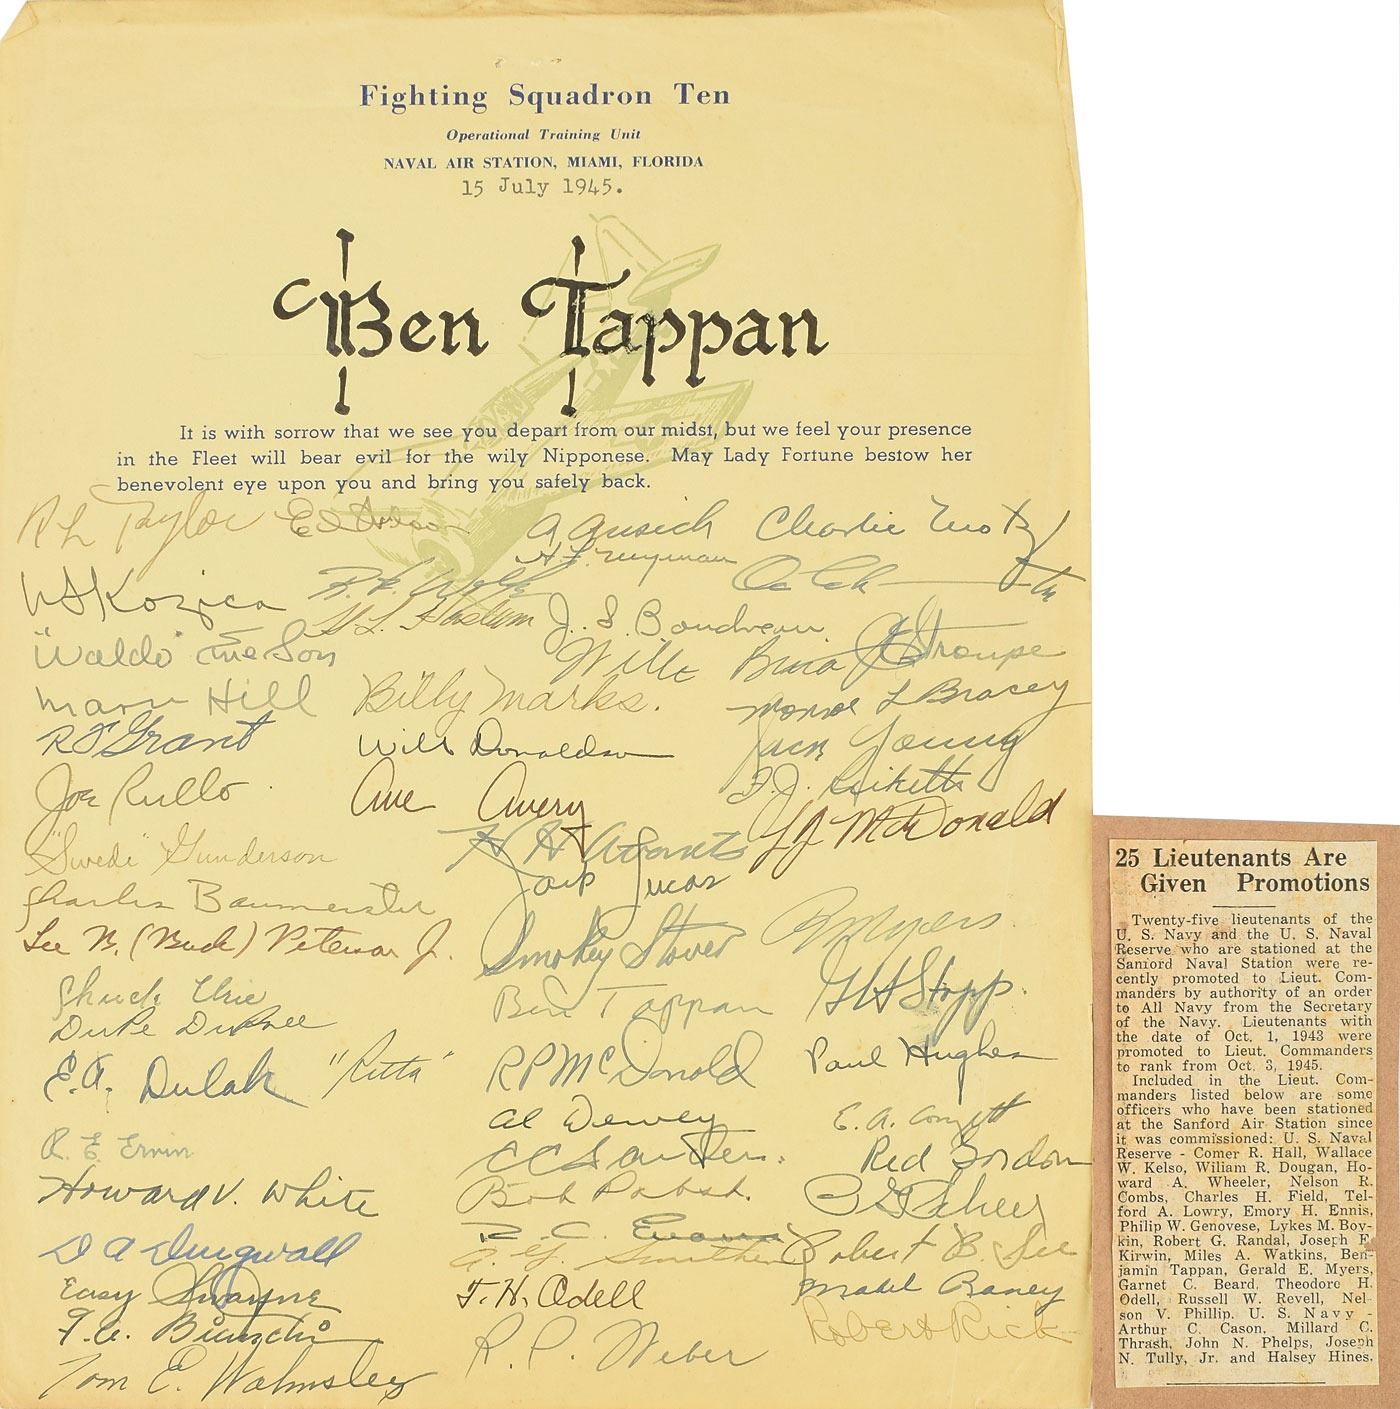 Fighting Squadron Ten
Operational Training Unit
NAVAL AIR STATION, MIAMI, FLORIDA
15 July 1945.
Ben Tappan
It is with sorrow that we see you depart from our midst, but we feel your presence
in the Fleet will bear evil for the wily Nipponese. May Lady Fortune bestow her
benevolent eye upon you and bring you safely back.
R L Taylor
Charlie
W S Kozica
J. S. Boudreau
"Waldo"
Stroupe
Marv Hill
Billy Marks.
L Bracey
R F Grant
Will Donaldson
Jack Young
Joe Rullo
Avery
McDonald
"Swede" Gunderson
Jack Lucas
Charles Baumeister
Lee B. (Buck) Peterson Jr.
Smokey Stover
Myers
Chuck
Ben Tappan
Stopp.
E. A. Dulak
"Ritta"
R P McDonald
Paul Hughes
Al Dewey
E. A.
R. E. Ervin
Red Gordon
Howard V. White
Bob Pabst.
D A Dingwall
Robert B. See
Easy Swayne
T. H. Odell
Mabel Raney
Bianchi
R. P. Weber
Robert Rick
Tom E. Walmsley
25 Lieutenants Are
Given Promotions
Twenty-five lieutenants of the
U. S. Navy and the U. S. Naval
Reserve who are stationed at the
Sanford Naval Station were re-
cently promoted to Lieut. Com-
manders by authority of an order
to All Navy from the Secretary
of the Navy. Lieutenants with
the date of Oct. 1, 1943 were
promoted to Lieut. Commanders
to rank from Oct. 3, 1945.
Included in the Lieut. Com-
manders listed below are some
officers who have been stationed
at the Sanford Air Station since
it was commissioned: U. S. Naval
Reserve - Comer R. Hall, Wallace
W. Kelso, Wiliam R. Dougan, Ho-
ward A. Wheeler, Nelson R.
Combs, Charles H. Field, Tel-
ford A. Lowry, Emory H. Ennis,
Philip W. Genovese, Lykes M. Boy-
kin, Robert G. Randal, Joseph F.
Kirwin, Miles A. Watkins, Ben-
jamin Tappan, Gerald E. Myers,
Garnet C. Beard, Theodore H.
Odell, Russell W. Revell, Nel-
son V. Phillip. U. S. Navy -
Arthur C. Cason, Millard C.
Thrash, John N. Phelps, Joseph
N. Tully, Jr. and Halsey Hines.